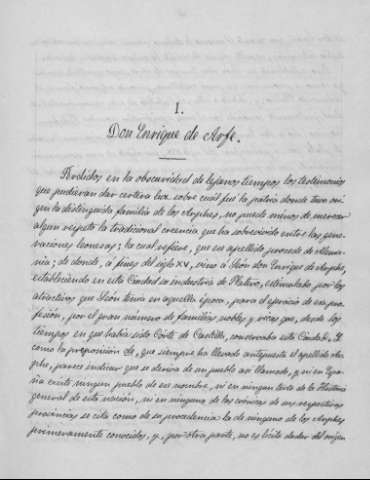 I.
Don Enrique de Arfe.
Perdidos en la obscuridad de lejanos tiempos los testimonios
que pudieran dar certera luz sobre cuál fue la patria donde tuvo ori-
gen la distinguida familia de los Arphes, no puede menos de merecer
algun respeto la tradicional creencia que ha sobrevivido entre las gene-
raciones leonesas; la cual refiere, que ese apellido procede de Alema-
nia; de donde, á fines del siglo XV, vino á León don Enrique de Arphe,
estableciendo en esta Ciudad su industria de Platero, estimulado por los
atractivos que León tenía en aquella época, para el ejercicio de su pro-
fesión, por el gran número de familias nobles y ricas que, desde los
tiempos en que había sido Corte de Castilla, conservaba esta Ciudad. Y
como la preposición de, que siempre ha llevado antepuesta el apellido Ar-
phe, parece indicar que se deriva de un pueblo así llamado, y ni en Espa-
ña existe ningún pueblo de ese nombre, ni en ningun texto de la Historia
general de esta nación, ni en ninguna de las crónicas de sus respectivas
provincias se cita como de su procedencia la de ninguno de los Arphes
primeramente conocidos, y, por otra parte, no es lícito dudar del origen